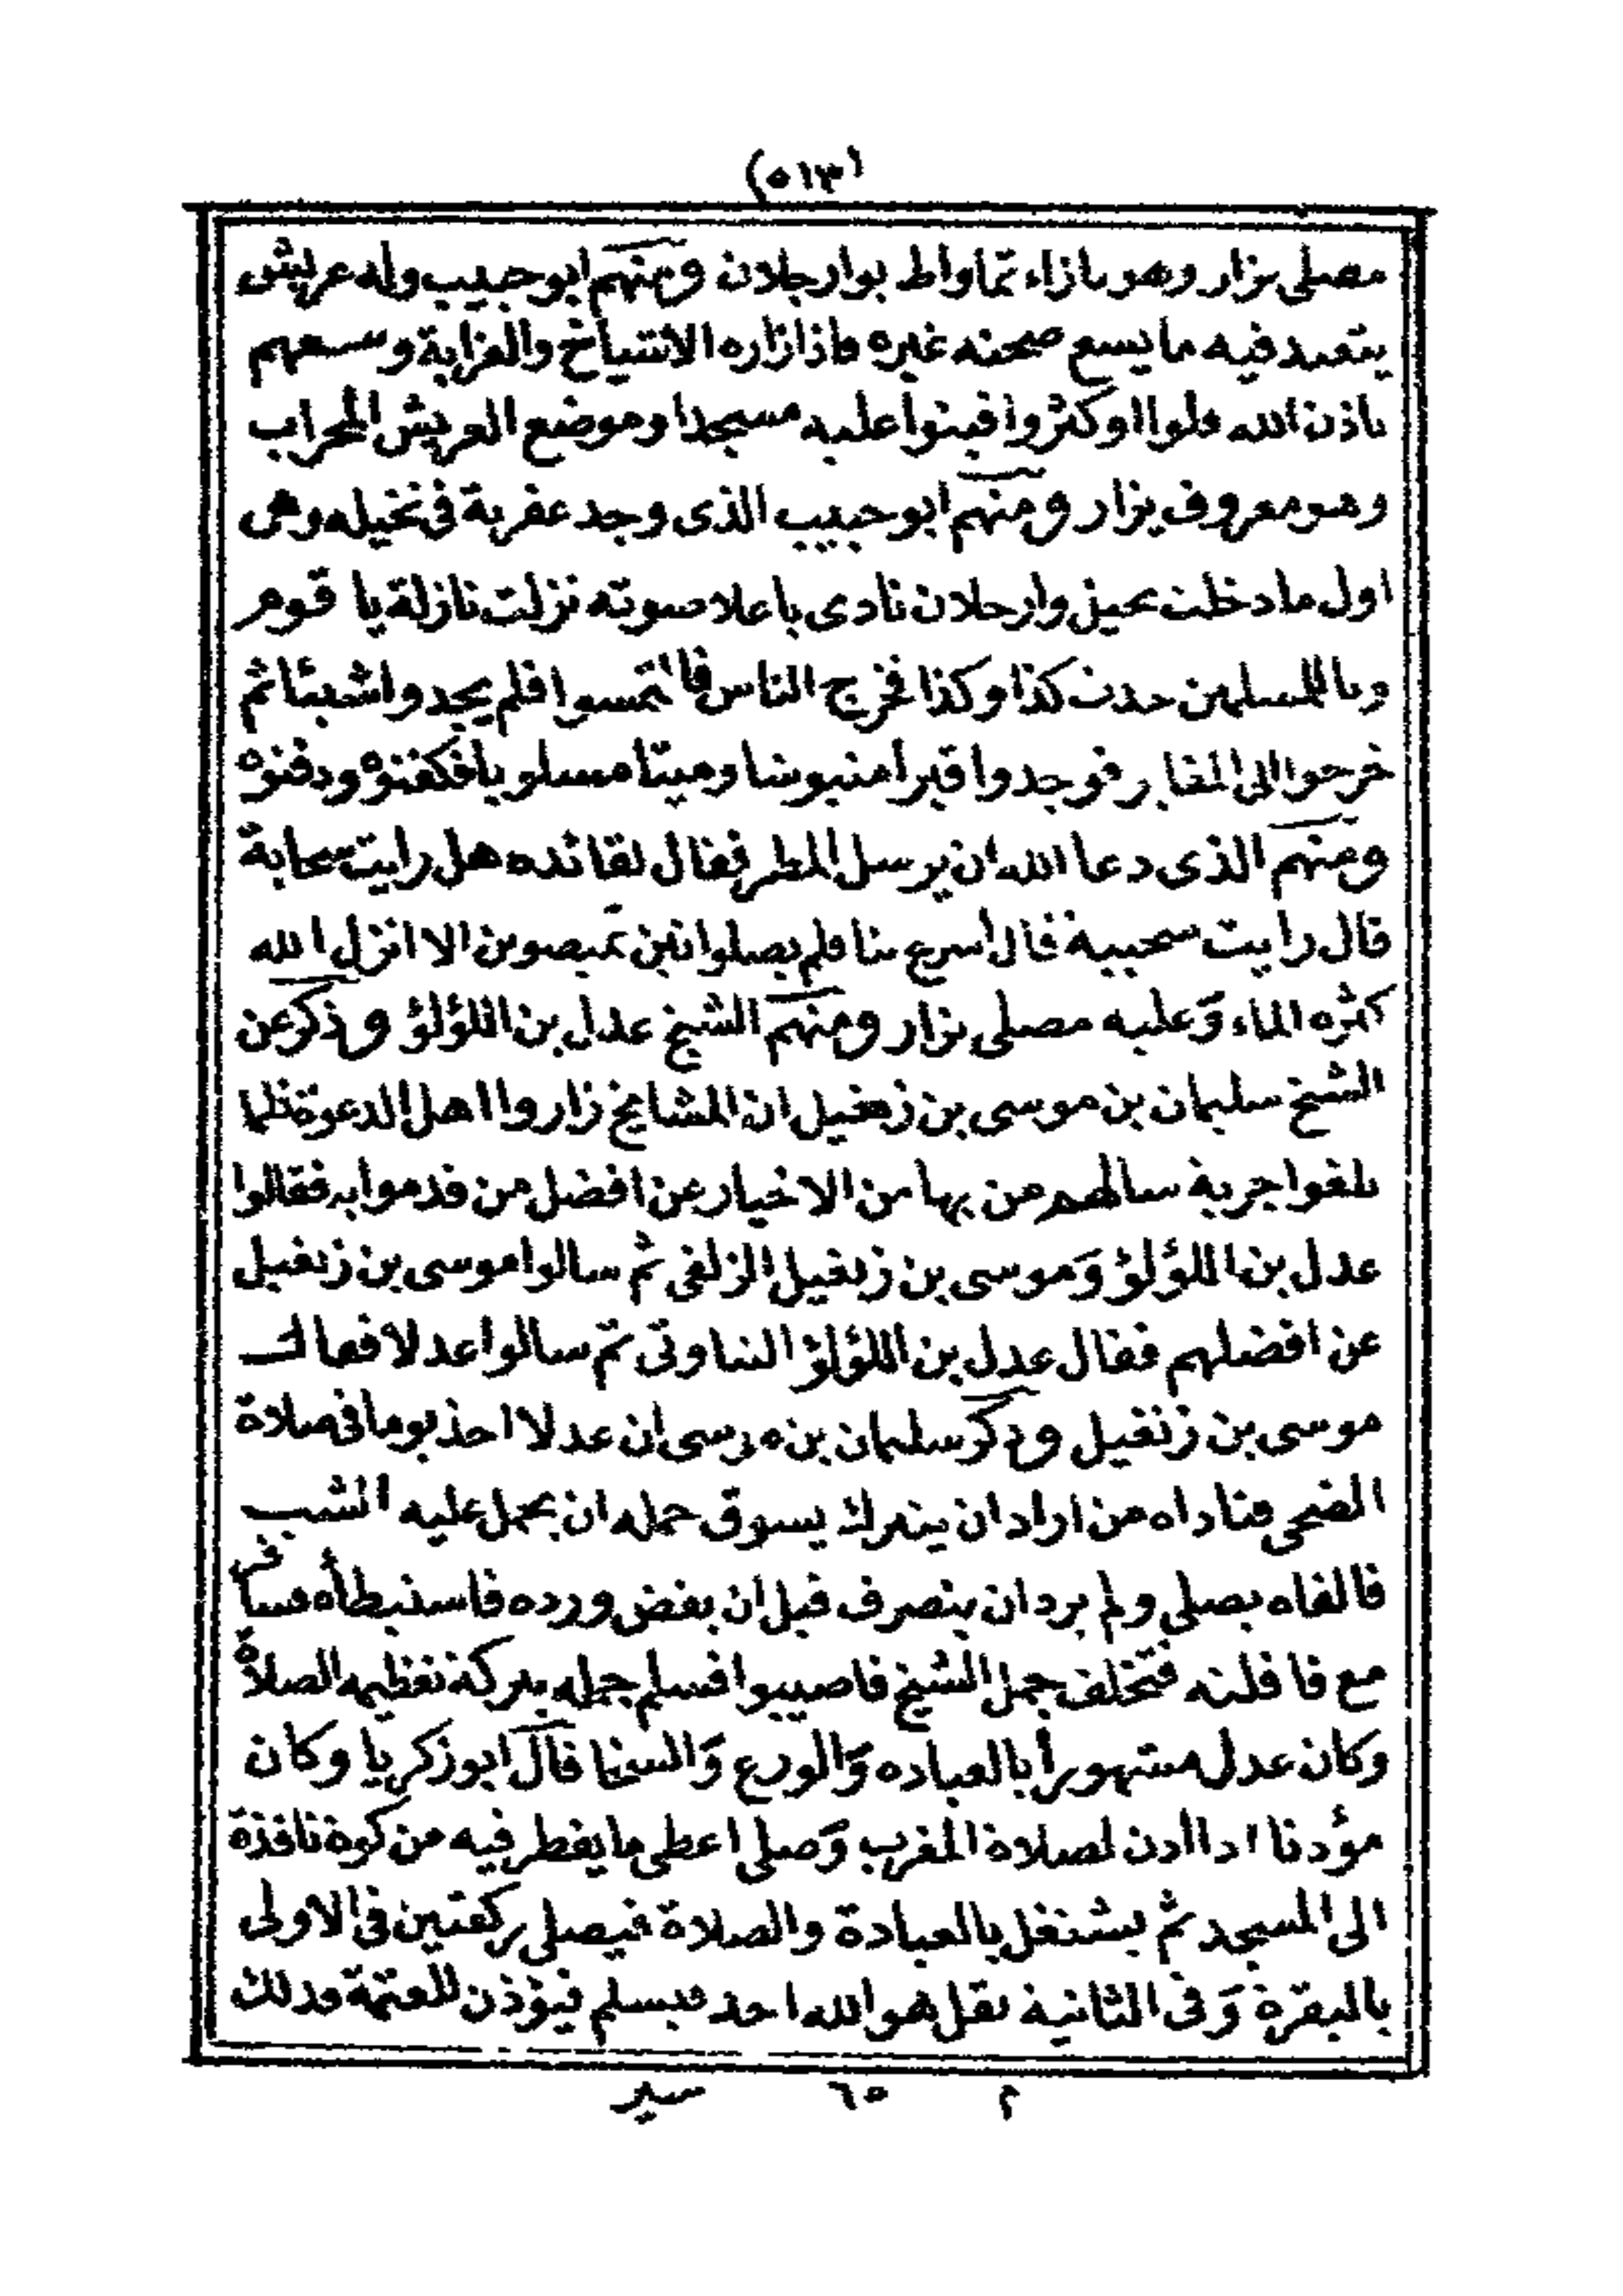 (٥١٣)
مصلى يزار وهو بازاء تماواط بوارجلان ومنهم ابو حبيب وله عريش
يتعبد فيه ما يسع صحنه غيره فاذا زاره الاشياخ والعزابة وسعهم
باذن الله قلوا او كثروا فبنوا عليه مسجدا وموضع العريش المحراب
وهو معروف يزار ومنهم ابو حبيب الذى وجد عفرية فى نخيله وهى
اول ما دخلت وارجلان نادى باعلا صوته نزلت نازلة يا قوم
ويا للمسلمين حدث كذا وكذا فخرج الناس فالتمسوا فلم يجدوا شيئا ثم
خرجوا الى المقابر فوجدوا قبرا منبوشا وميتا مسلوبا فكفنوه ودفنوه
ومنهم الذى دعا الله ان يرسل المطر فقال لقائده هل رايت سحابة
قال رايت سحيبة قال اسرع بنا فلم يصلوا تين تميصوين الا انزل الله
كثره الماء وعليه مصلى يزار ومنهم الشيخ عدل بن اللؤلؤ وذكر عن
الشيخ سليمان بن موسى بن زنغيل ان المشايخ زاروا اهل الدعوة فلما
بلغوا جربة سالهم من بها من الاخيار عن افضل من قدموا به فقالوا
عدل بن اللؤلؤ وموسى بن زنغيل الزلفى ثم سالوا موسى بن زنغيل
عن افضلهم فقال عدل بن اللؤلؤ التناوتى ثم سالوا عدلا فقال
موسى بن زنغيل وذكر سليمان بن موسى ان عدلا اخذ يوما فى صلاة
الضحى فناداه من اراد ان يتبرك يسوق جمله ان يحمل عليه الشب
فالفاه يصلى ولم يرد ان ينصرف قبل ان يقض ورده فاستبطأه فسافر
مع قافلته فتخلف جمل الشيخ فاصيبوا فسلم جمله ببركة تعظيمه الصلاة
وكان عدل مشهورا بالعباده والورع والسخا قال ابو زكريا وكان
مؤذنا اذا اذن لصلاة المغرب وصلى اعطى ما يفطر فيه من كوة نافذة
الى المسجد ثم يشتغل بالعبادة والصلاة فيصلى ركعتين فى الاولى
بالبقرة وفى الثانية بقل هو الله احد فيسلم فيؤذن للعتمة فذلك
م ٦٥ سير